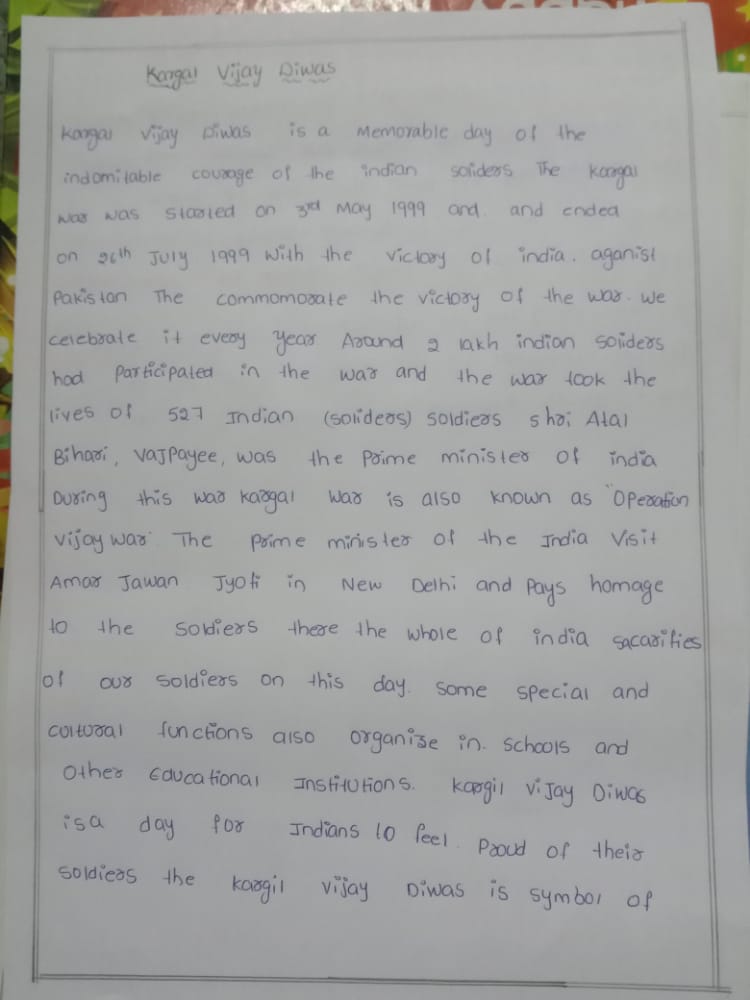 Kargal Vijay Diwas
Kargal Vijay Diwas is a Memorable day of the
indomitable courage of the indian soliders The Kargal
war was started on 3rd May 1999 and. and ended
on 26th July 1999 with the victory of india. aganist
Pakistan The commomorate the victory of the war. we
celebrate it every year Around 2 lakh indian soliders
had participated in the war and the war took the
lives of 527 Indian (soliders) soldiers shri Atal
Bihari, Vajpayee, was the prime minister of india
During this war kargal war is also known as "Operation
vijay war" The prime minister of the India Visit
Amar Jawan Jyoti in New Delhi and pays homage
to the soldiers there the whole of india sacarifies
of our soldiers on this day. some special and
cultural functions also organize in. schools and
Other Educational Institutions. Kargil Vijay Diwas
is a day for Indians to feel. Proud of their
soldiers the kargil vijay Diwas is symbol of